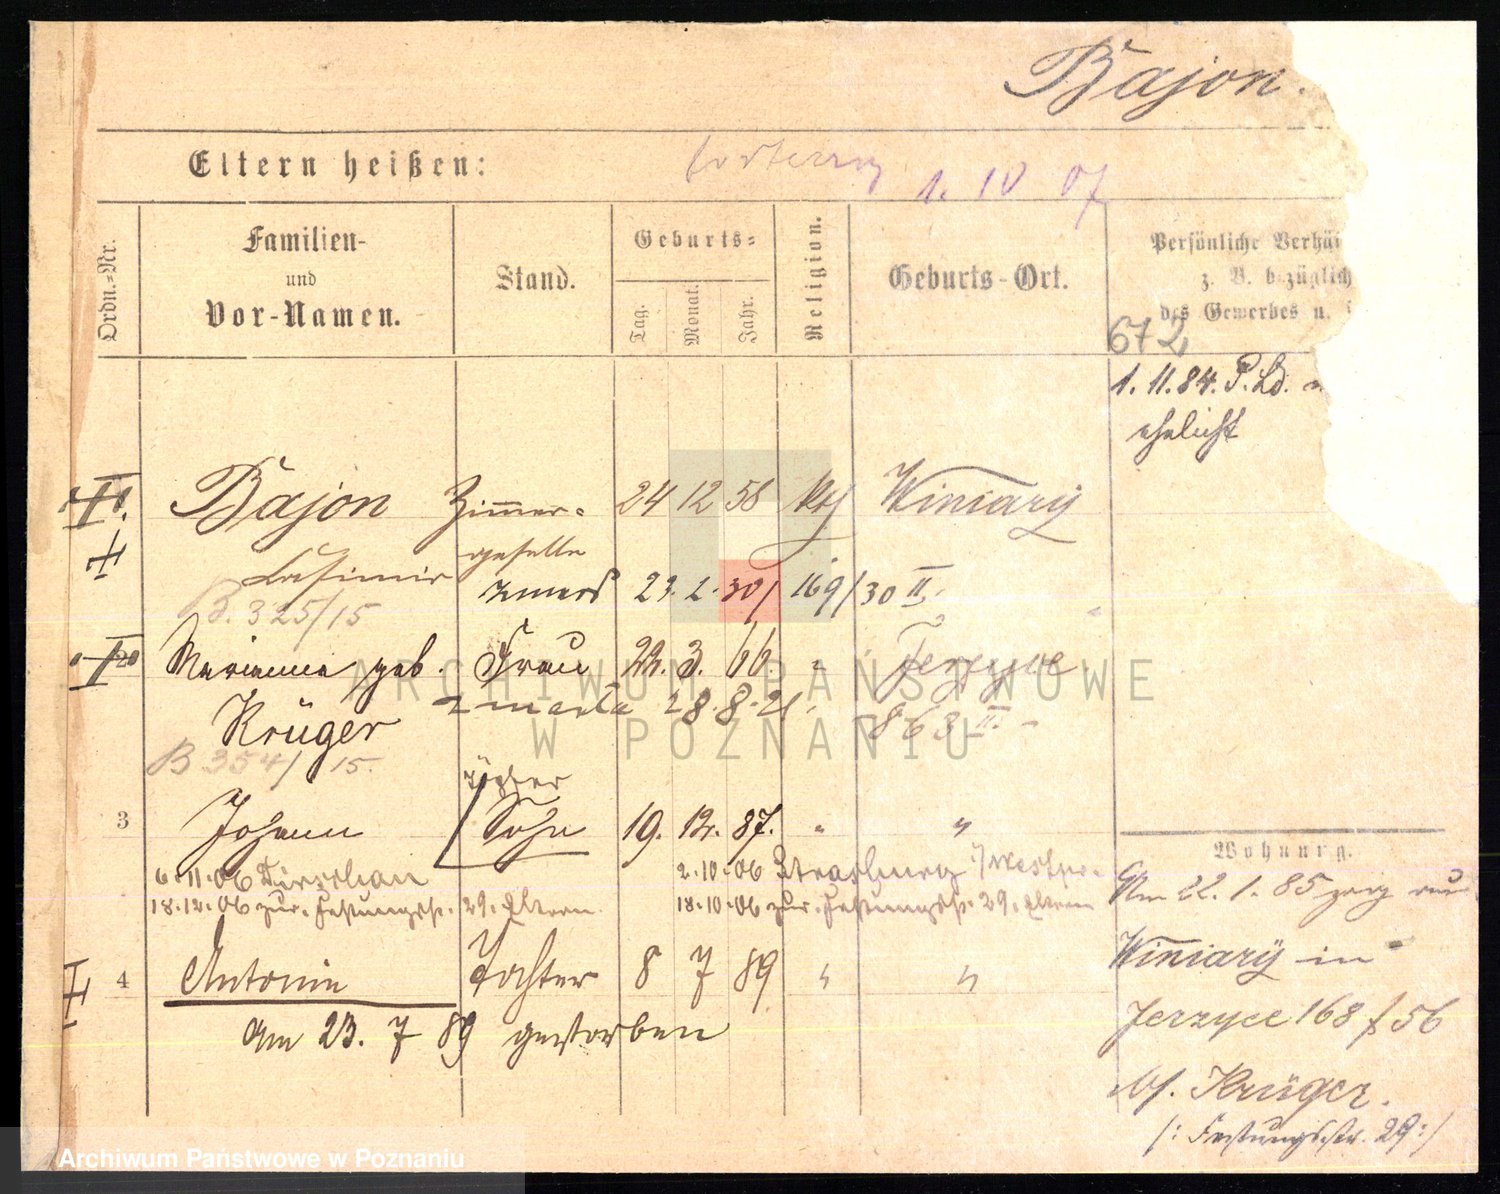 Bajon.
Eltern heißen:
1. 10 07
Ordn.-Nr.
Familien-
und
Vor-Namen.
Stand.
Geburts-
Tag.
Monat.
Jahr.
Religion.
Geburts-Ort.
Persönliche Verhäl
z. B. bezüglich
des Gewerbes u.
672
1. 11. 84. P. Ld.
ehelicht
Bajon Zimmer- 24 12 58 kth Winiary
Casimir geselle
zmarł 23. 2. 30/ 169/30 II.
B. 325/15
Marianna geb. Frau 22. 3. 66. " Jerzyce
Krüger zmarła 28. 8. 21. 863 II. -
B 354/15.
Töpfer
3 Johann Sohn 19. 12. 87. " "
6.11.06 Dirschau 2.10.06 Strasburg i/Westpr.
18.12.06 zur. Festungsstr. 29. Eltern 18.10.06 zur. Festungsstr. 29. Eltern
4 Antonie Tochter 8 7 89 " "
Am 23. 7 89 gestorben
Wohnung.
Am 22. 1. 85 zog aus
Winiary in
Jerzyce 168 f 56
Krüger.
/: Festungsstr. 29 :/
ARCHIWUM PAŃSTWOWE
W POZNANIU
Archiwum Państwowe w Poznaniu